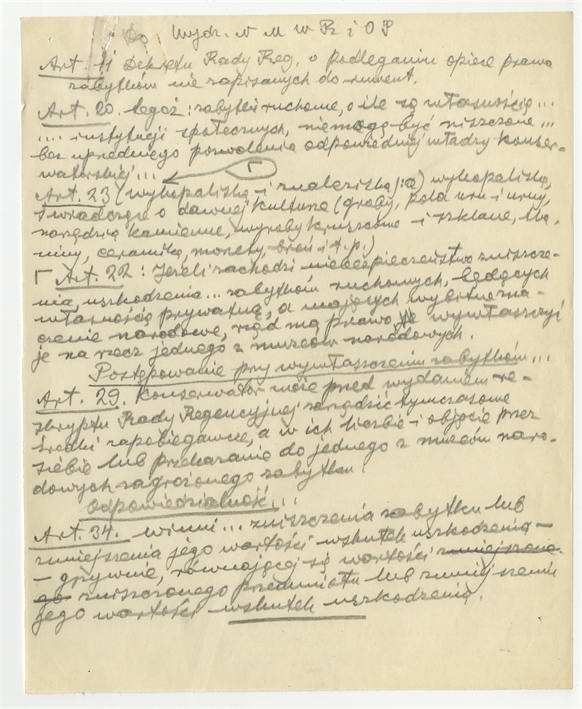 Do Wydz. N M W R i O P
Art. 11 Dekretu Rady Reg. o podleganiu opiece prawa
zabytków nie zapisanych do inwent.
Art. 20. tegoż: zabytki ruchome, o ile są własnością...
.... instytucji społecznych, nie mogą być niszczone...
bez uprzedniego pozwolenia odpowiedniej władzy konser-
watorskiej...
Art. 23 (wykopaliska i znaleziska) wykopaliska,
świadczące o dawnej kulturze (groby, pola urn i urny,
narzędzia kamienne, wyroby kruszcowe i szklane, tka-
niny, ceramika, monety, broń i t.p.)
Art. 22: Jeżeli zachodzi niebezpieczeństwo zniszcze-
nia, uszkodzenia... zabytków ruchomych, będących
własnością prywatną, a mających wybitne zna-
czenie narodowe, rząd ma prawo wywłaszczyć
je na rzecz jednego z muzeów narodowych.
Postępowanie przy wywłaszczeniu zabytków...
Art. 29. Konserwator może przed wydaniem re-
skryptu Rady Regencyjnej zarządzić tymczasowe
środki zapobiegawcze, a w ich liczbie i objęcie przez
siebie lub przekazanie do jednego z muzeów naro-
dowych zagrożonego zabytku.
Odpowiedzialność...
Art. 34. winni... zniszczenia zabytku lub
zmniejszenia jego wartości wskutek uszkodzenia –
– grzywnie, równającej się wartości zmniejszone-
go zniszczonego przedmiotu lub zmniejszeniu
jego wartości wskutek uszkodzenia.